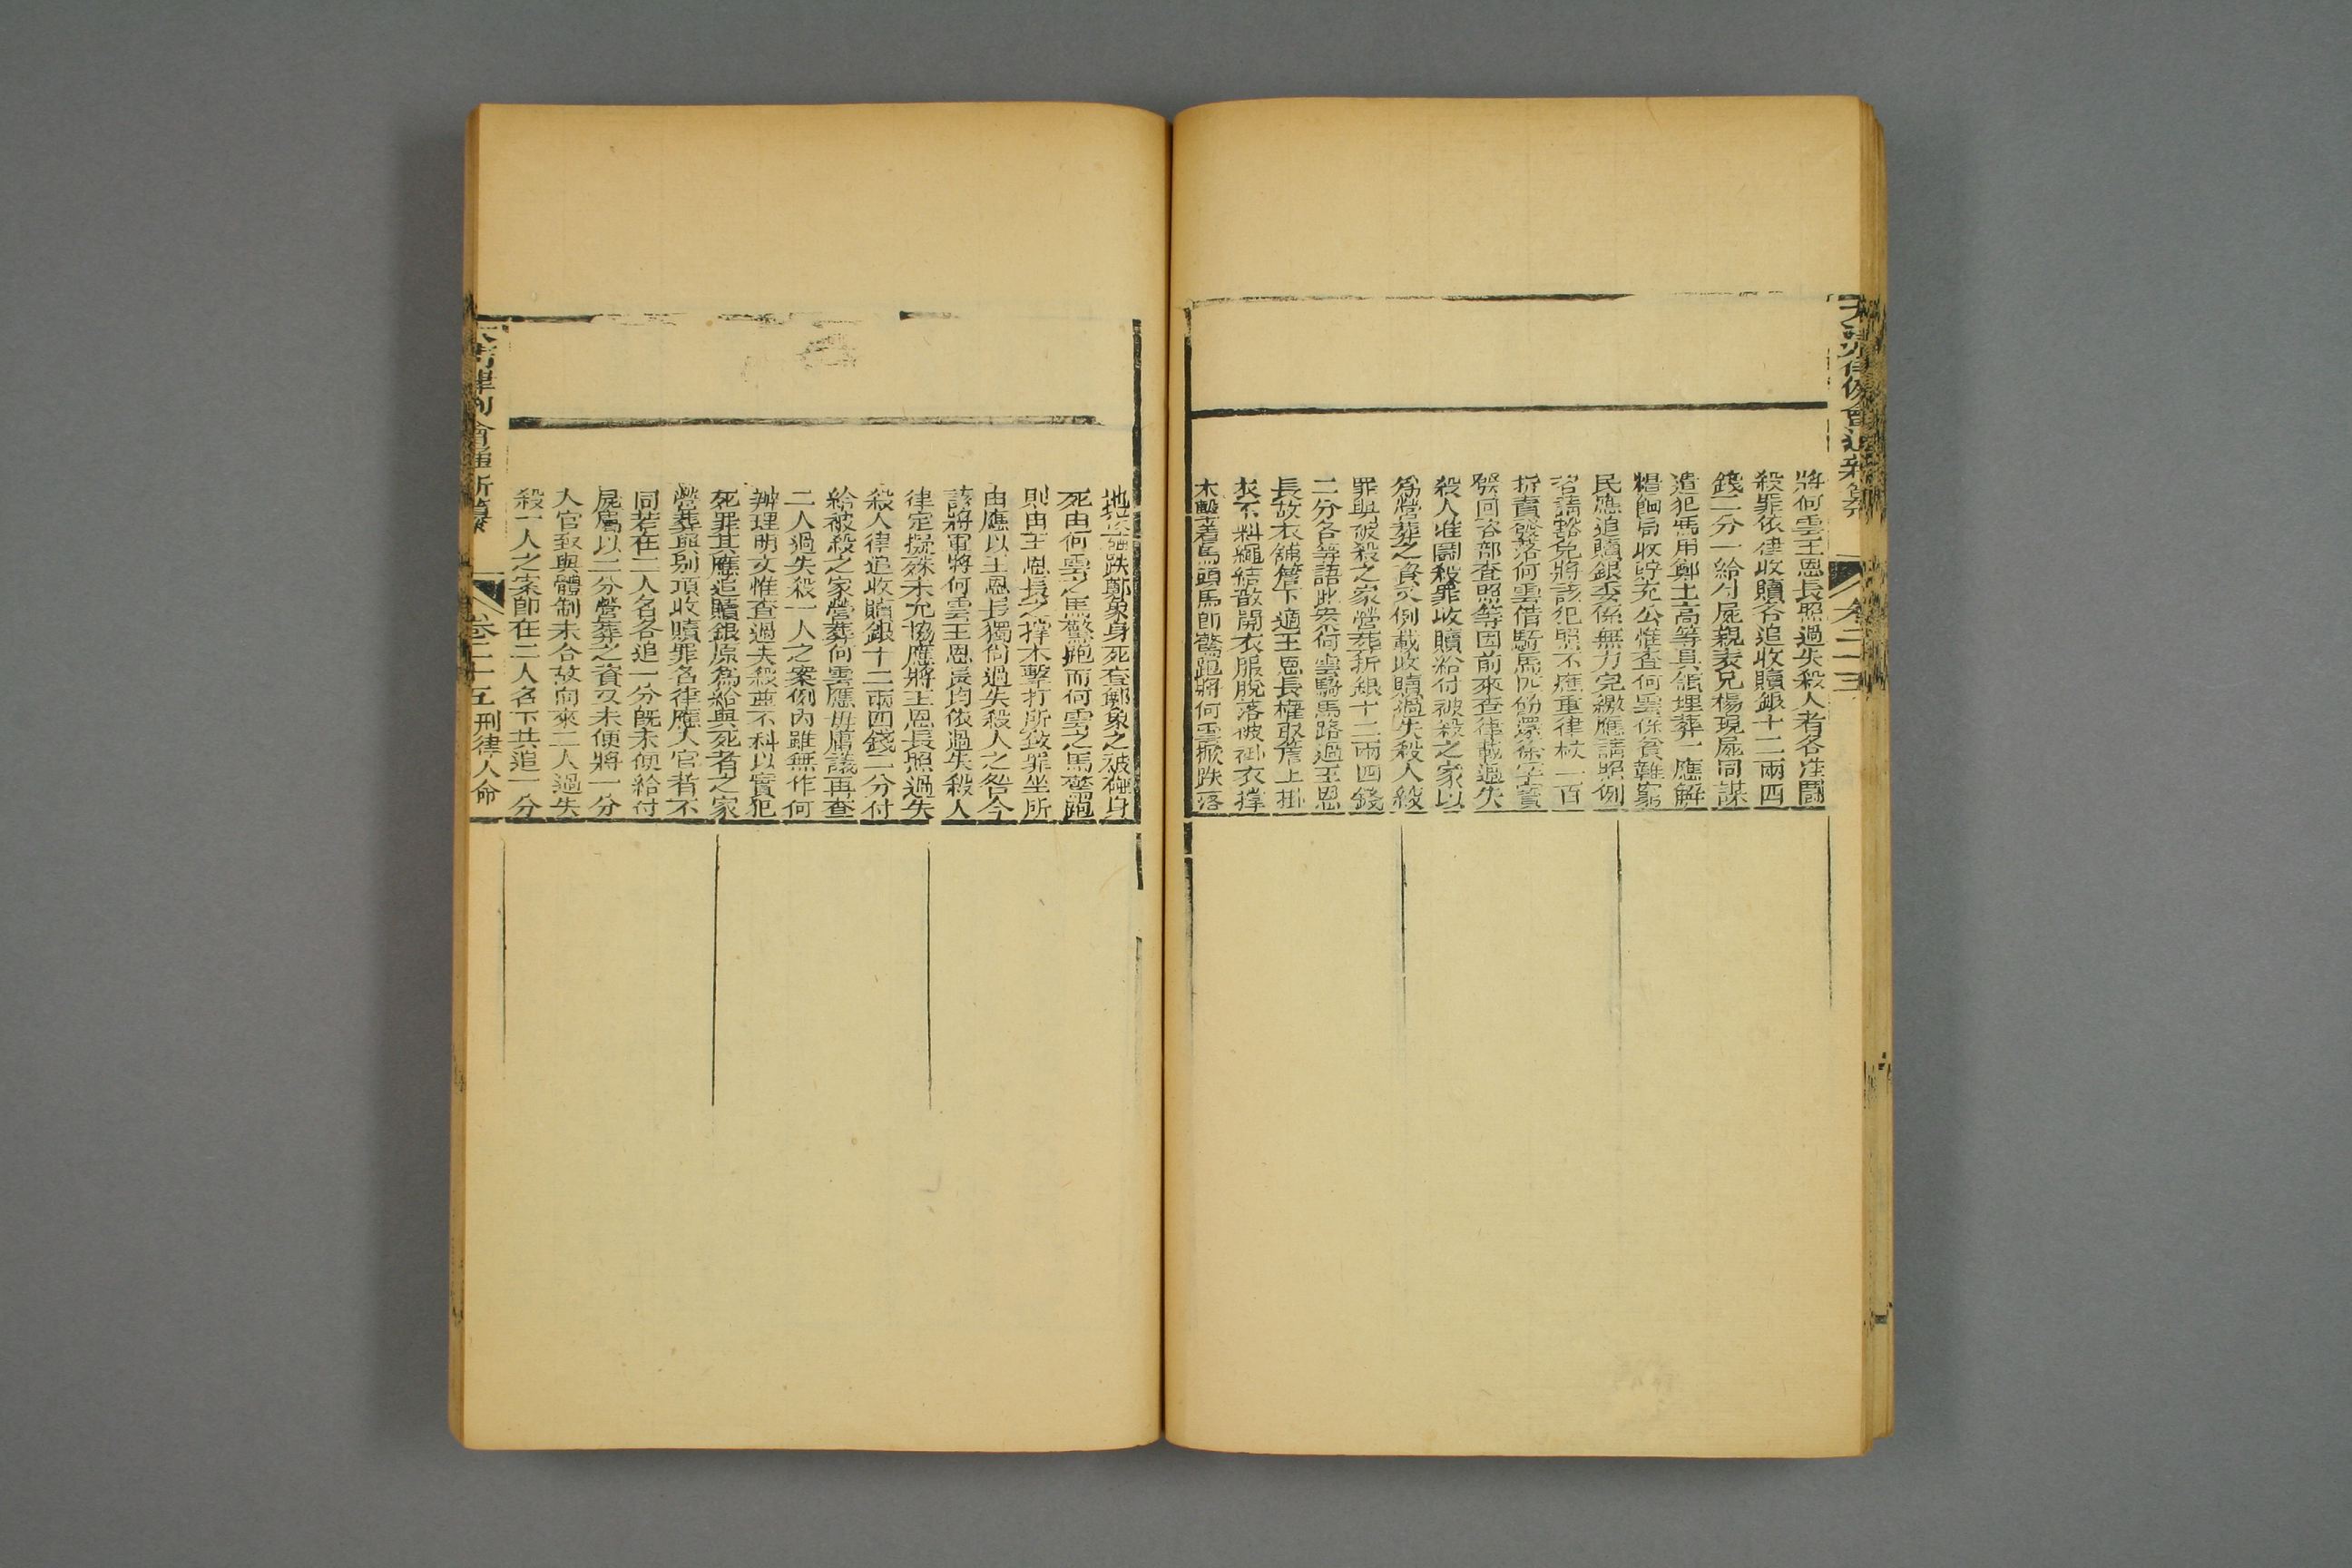 大清律例會通新纂
卷二十三
將何雲王恩長照過失殺人者各准鬪
殺罪依律收贖各追收贖銀十二兩四
錢二分一給付屍親表兄楊現屍同謀
遣犯馬用鄭士高等具領埋葬一應解
糧餉局收貯充公惟查何雲係貧難窮
民應追贖銀委係無力完繳應請照例
咨請豁免將該犯照不應重律杖一百
折責發落何雲借騎馬匹飭還徐字寳
俟回咨部查照等因前來查律載過失
殺人准鬪殺罪收贖給付被殺之家以
爲營葬之資又例載收贖過失殺人絞
罪與被殺之家營葬折銀十二兩四錢
二分各等語此案何雲騎馬路過王恩
長故衣舖簷下適王恩長權取簷上掛
衣不料繩結散開衣服脫落彼掛衣撑
木毄著馬頭馬卽驚跑將何雲掀跌落
地 碰跌鄭象身死查鄭象之被碰身
死由何雲之馬驚跑而何雲之馬驚跑
則由王恩長之撑木擊打所致罪坐所
由應以王恩長獨引過失殺人之咎今
該將軍將何雲王恩長均依過失殺人
律定擬殊未允協應將王恩長照過失
殺人律追收贖銀十二兩四錢二分付
給被殺之家營葬何雲應毋庸議再查
二人過失殺一人之案例內雖無作何
辦理明文惟查過失殺並不科以實犯
死罪其應追贖銀原爲給與死者之家
營葬與別項收贖罪名律應入官者不
同若在二人名各追一分旣未便給付
屍屬以二分營葬之資又未便將一分
入官致與體制未合故向來二人過失
殺一人之案卽在二人名下共追一分
大清律例會通新纂
卷二十五 刑律人命